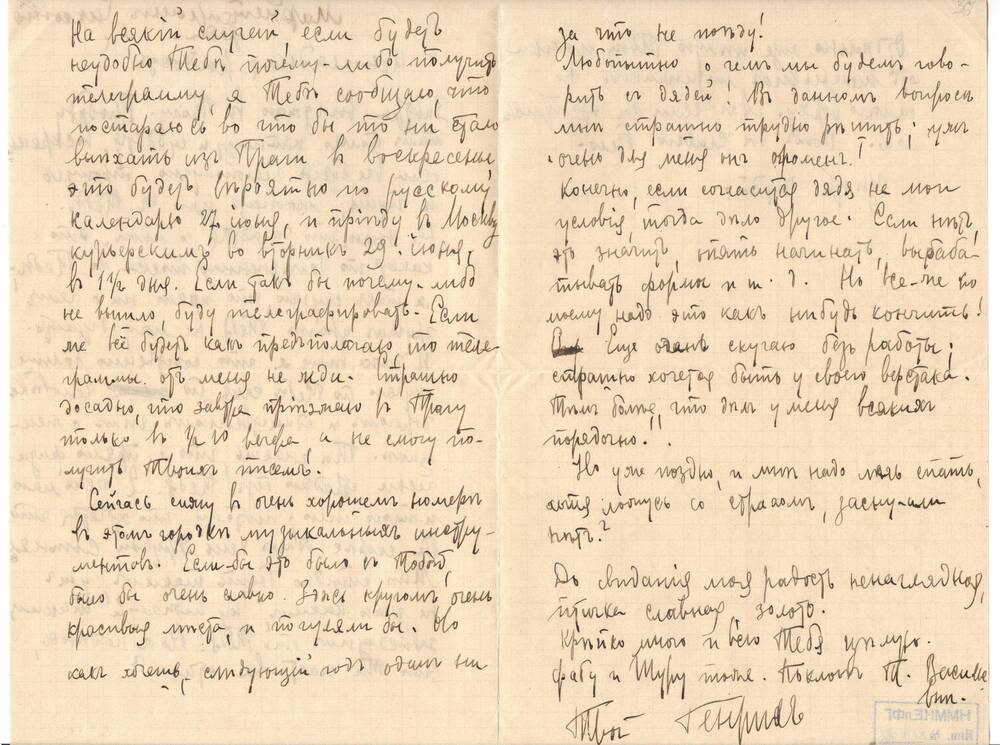 На всякій случай, если будетъ
неудобно Тебѣ почему-либо получить
телеграмму, я Тебѣ сообщаю, что
постараюсь во что бы то ни стало
выѣхать изъ Праги въ воскресенье
это будетъ вѣроятно по русскому
календарю 27 іюня, и пріѣду въ Москву
курьерскимъ во вторникъ 29. іюня,
въ 1½ дня. Если такъ бы почему-либо
не вышло, буду телеграфировать. Если
же всё будетъ какъ предполагаю, то теле-
граммы отъ меня не жди. Страшно
досадно, что завтра пріѣзжаю въ Прагу
только въ ½ 10 вечера, а не смогу по-
лучить Твоихъ писемъ.
Сейчасъ сижу въ очень хорошемъ номерѣ
въ этомъ городкѣ музыкальныхъ инстру-
ментовъ. Если-бы это было съ Тобой,
было бы очень славно. Здѣсь кругомъ очень
красивыя мѣста, и погуляли бы. Но
какъ хочешь, слѣдующій годъ одинъ ни
за что не поѣду!
Любопытно о чемъ мы будемъ гово-
рить съ дядей! Въ данномъ вопросѣ
мнѣ страшно трудно рѣшить;
очень для меня онъ
Конечно, если согласится дядя на мои
условія, тогда дѣло другое. Если нѣтъ,
это значитъ, опять начинать, выраба-
тывать формы и т. д. Но все-же по
моему надо это какъ нибудь кончить!
Еще очень скучаю безъ работы;
страшно хочется быть у своего верстака.
Тѣмъ болѣе, что дѣлъ у меня всякихъ
порядочно.
Но уже поздно, и мнѣ надо лечь спать,
хотя ложусь со страхомъ, засну-или
нѣтъ?
До свиданія моя радость ненаглядная,
птичка славная, золото.
Крѣпко много и всю Тебя цѣлую.
Фабу и Шуру тоже. Поклонъ Т. Василье-
внѣ.
Твой Генрихъ